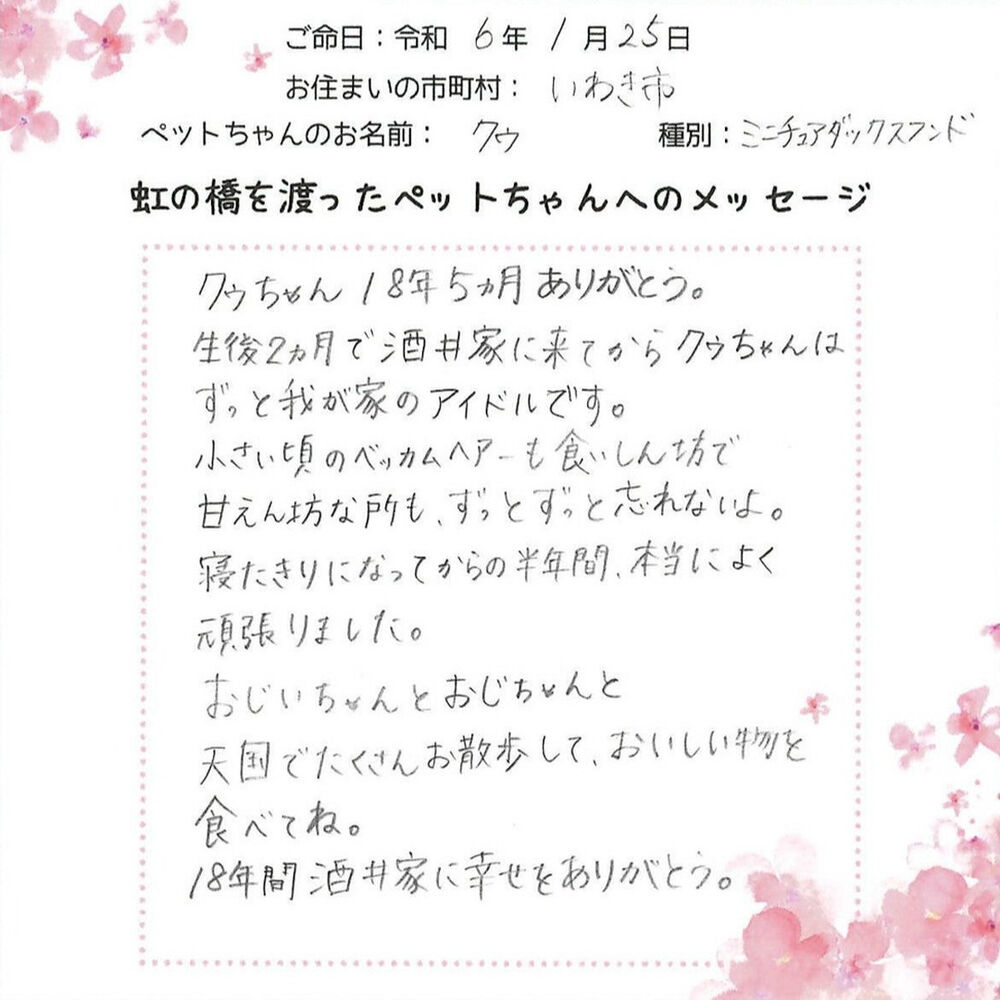 ご命日：令和 6年 1月25日
お住まいの市町村： いわき市
ペットちゃんのお名前： クゥ 種別：ミニチュアダックスフンド
虹の橋を渡ったペットちゃんへのメッセージ
クゥちゃん 18年5ヵ月ありがとう。
生後2ヵ月で酒井家に来てからクゥちゃんは
ずっと我が家のアイドルです。
小さい頃のベッカムヘアーも食いしん坊で
甘えん坊な所も、ずっとずっと忘れないよ。
寝たきりになってからの半年間、本当によく
頑張りました。
おじいちゃんとおじちゃんと
天国でたくさんお散歩して、おいしい物を
食べてね。
18年間酒井家に幸せをありがとう。